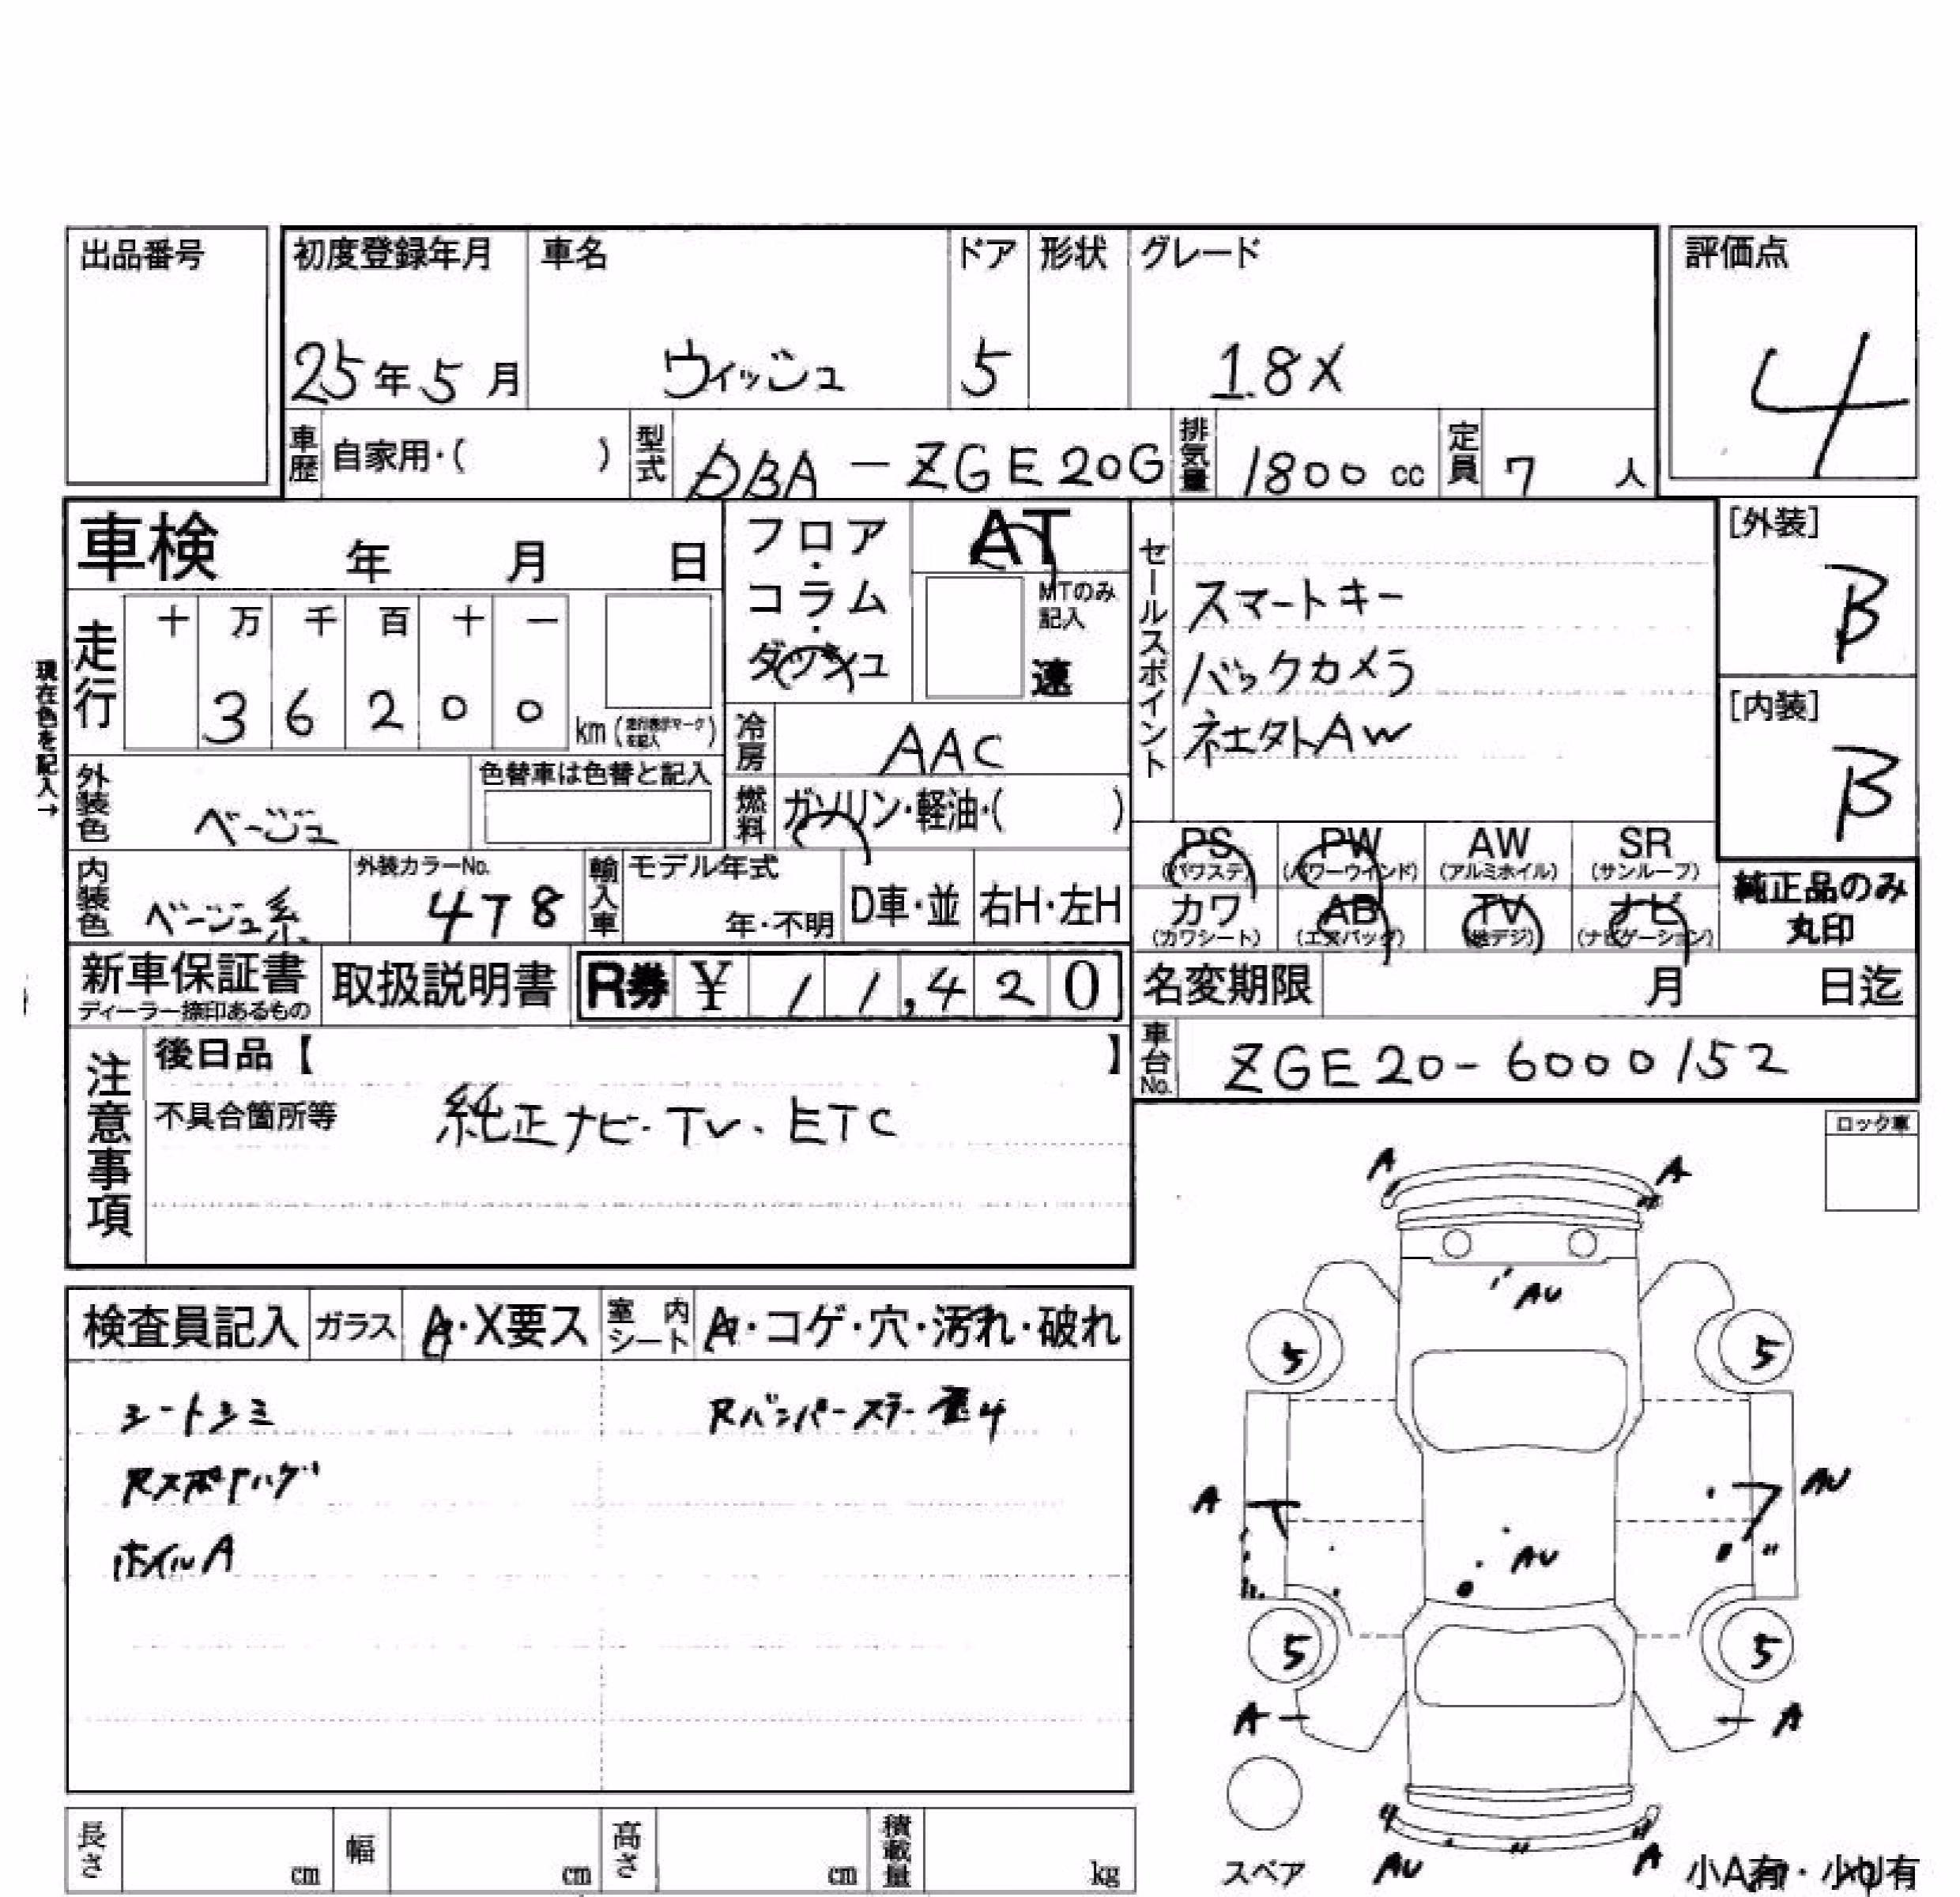 出品番号
初度登録年月 車名 ドア 形状 グレード
評価点
25年5月 ウィッシュ 5 1.8X
4
車歴 自家用・( ) 型式 DBA-ZGE20G 排気量 1800 cc 定員 7 人
車検 年 月 日
フロア・コラム・ダッシュ
AT
MTのみ記入
速
セールスポイント
スマートキー
バックカメラ
社外AW
[外装]
B
[内装]
B
現在色を記入→
走行 十 万 千 百 十 一
3 6 2 0 0 km (走行表示マークを記入)
冷房 AAC
外装色 ベージュ
色替車は色替と記入
燃料 ガソリン・軽油・( )
内装色 ベージュ系
外装カラーNo. 4T8
輸入車 モデル年式 年・不明 D車・並 右H・左H
PS (パワステ) PW (パワーウインド) AW (アルミホイル) SR (サンルーフ)
カワ (カワシート) AB (エアバッグ) TV (地デジ) ナビ (ナビゲーション)
純正品のみ丸印
新車保証書 ディーラー捺印あるもの 取扱説明書 R券 ¥ 11,420
名変期限 月 日迄
注意事項
後日品【 】
車台No. ZGE20-6000152
不具合箇所等 純正ナビ・TV・ETC
ロック車
検査員記入 ガラス A・X要ス 室内シート A・コゲ・穴・汚れ・破れ
シートシミ Rバンパーステー歪4
Rスポ下ハゲ
ホイルA
A A
AU
5 5
A AU
AU "
5 5
A A
4
AU " A
スペア
小A有・小U有
長さ cm 幅 cm 高さ cm 積載量 kg